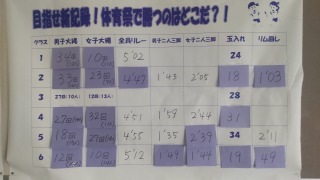 目指せ新記録！体育祭で勝つのはどこだ？！
クラス 男子大縄 女子大縄 全員リレー 男子二人三脚 女子二人三脚 玉入れ リム回し
24
1 34回 10回 5'02
2 33回 23回 4'47 1'43 2'05 18 1'03
3 27回(10人) 12回(12人) 28
4 27回 32回 4'51 1'59 2'44 31
5 18回 27回 4'55 1'35 2'39 34 2'11
6 12回 10回 5'12 1'49 1'44 19 49